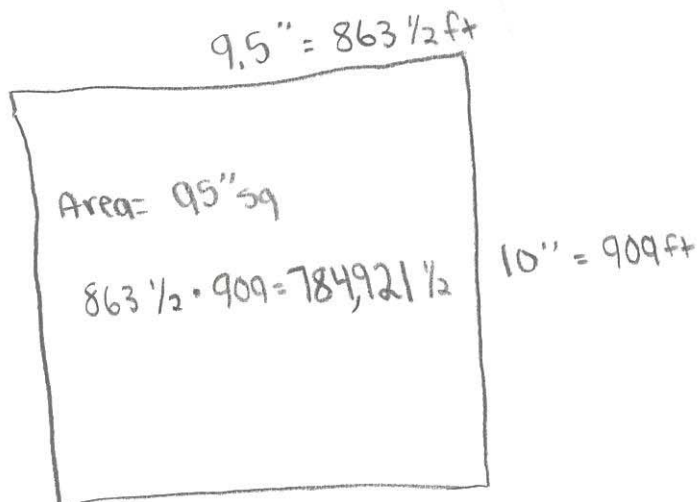 9.5" = 863 1/2 ft
Area = 95" sq
863 1/2 · 909 = 784,921 1/2
10" = 909 ft